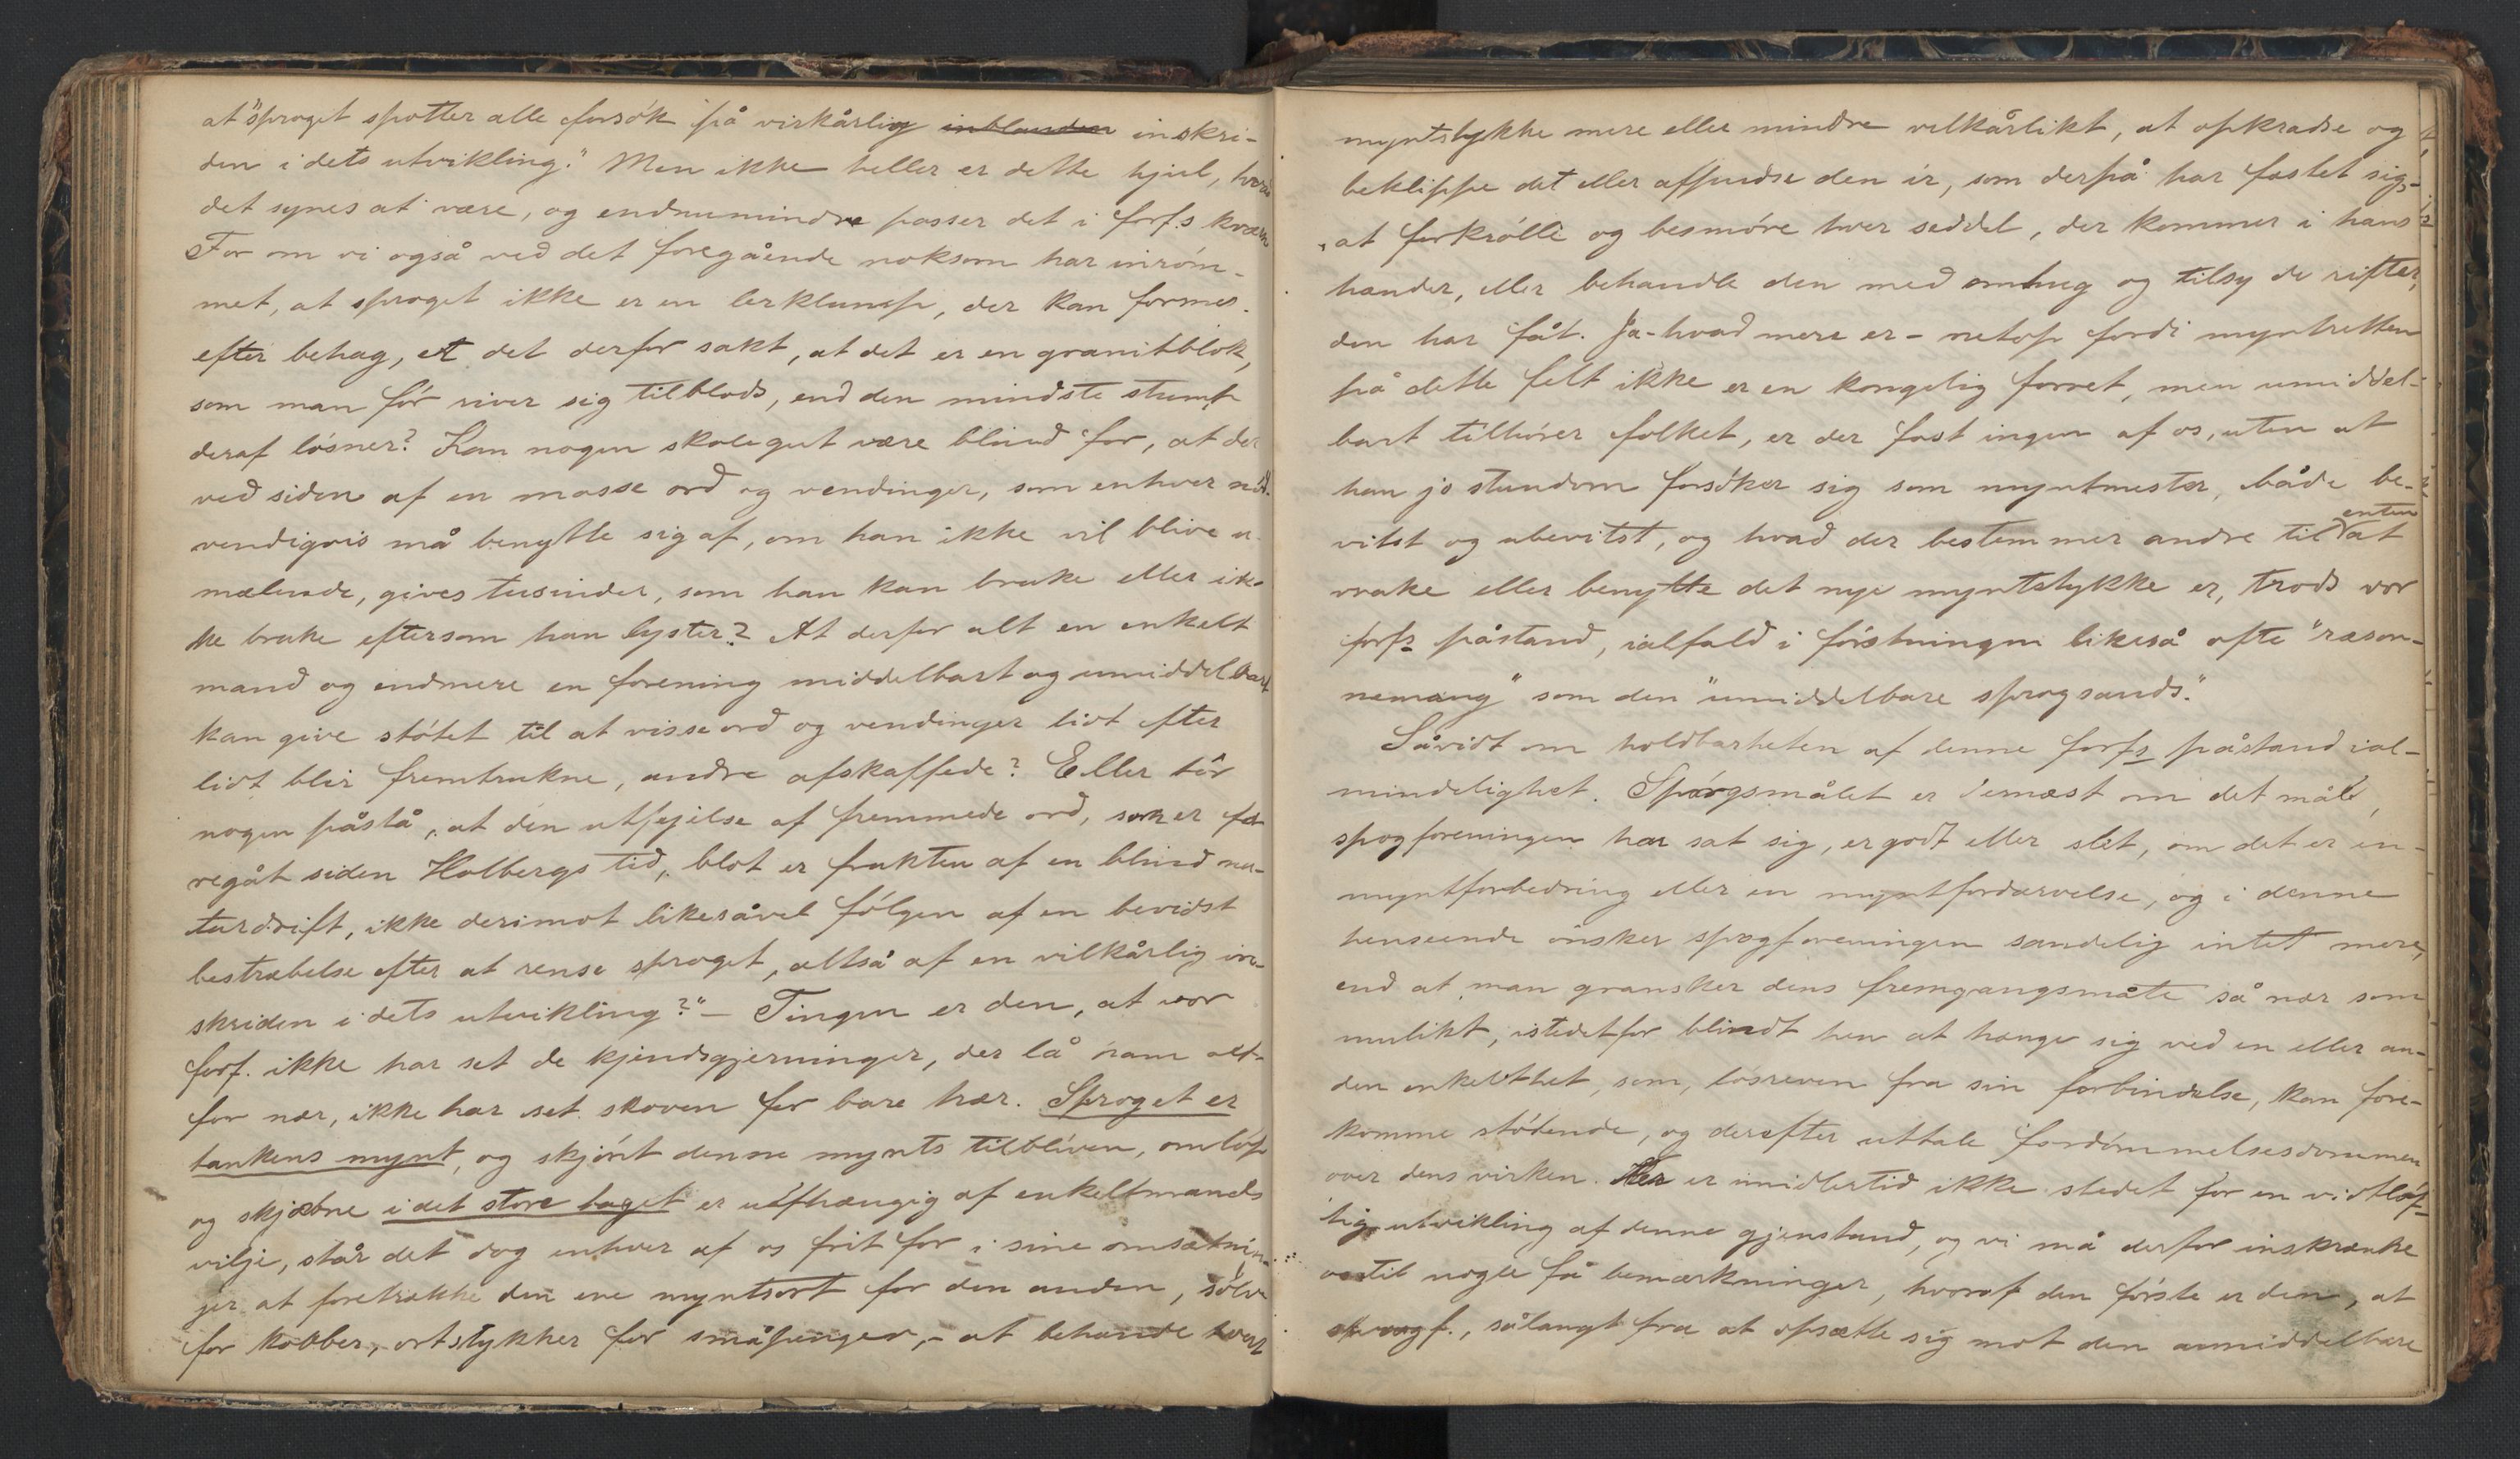 at "sproget spotter alle forsök på vilkårlig inblanden inskri-
den i dets utvikling." Men ikke heller er dette hjul, hvad
det synes at være, og endnumindre passer det i forf.s kværn
For om vi også ved det foregående noksom har inröm-
met, at sproget ikke er en lerklump, der kan formes
efter behag, et det derfor sakt, at det er en granitblok,
som man för river sig tilblods, end den mindste stump
deraf lösner? Kan nogen skolegut være blind for, at der
ved siden af en masse ord og vendinger, som enhver nöd-
vendigvis må benytte sig af, om han ikke vil blive u-
mælende, gives tusinder, som han kan bruke eller ik-
ke bruke eftersom han lyster? At derfor alt en enkelt
mand og endmere en forening middelbart og umiddelbart
kan give stötet til at visse ord og vendinger lidt efter
lidt blir fremtrukne, andre afskaffede? Eller tör
nogen påstå, at den utfejelse af fremmede ord, som er fo-
regåt siden Holbergs tid, blot er frukten af en blind na-
turdrift, ikke derimot likesåvel fölgen af en bevidst
bestræbelse efter at rense sproget, altså af en vilkårlig in-
skriden i dets utvikling?" – Tingen er den, at vor
forf. ikke har set de kjendsgjerninger, der lå ham alt-
for nær, ikke har set skoven for bare trær. Sproget er
tankens mynt, og skjönt denne mynts tilbliven, omlöp
og skjæbne i det store taget er uafhængig af enkeltmands
vilje, står det dog enhver af os frit for i sine omsætnin-
jer at foretrække den ene myntsort for den anden, sölv
for kobber, ortstykker for småpenger, – at behandle hvert
myntstykke mere eller mindre vilkårlikt, at opkradse og
beklippe det eller afpudse den ir, som derpå har fæstet sig,
at forkrölle og besmöre hver seddel, der kommer i hans
hænder, eller behandle den med omhug og tilsy de rifter,
den har fåt. Ja – hvad mere er – netop fordi myntretten
på dette felt ikke er en kongelig forret, men umiddel-
bart tilhörer folket, er der fast ingen af os, uten at
han jo stundom forsöker sig som myntmester, både be-
vitst og ubevitst, og hvad der bestemmer andre til enten at
vrake eller benytte det nye myntstykke er, trods vor
forfs påstand, ialfald i förstningen likeså ofte "ræson-
nemang" som den "umiddelbare sprogsands."
Såvidt om holdbarheten af denne forfs påstand ial-
mindelighet. Spörgsmålet er dernæst om det mål,
spogforeningen har sat sig, er godt eller slet, om det er en
myntforbedring eller en myntfordærvelse, og i denne
henseende önsker spogforeningen sandelig intet mere,
end at man gransker dens fremgangsmåte så nær som
mulikt, istedetfor blindt hen at hænge sig ved en eller an-
den enkelthet, som, lösreven fra sin forbindelse, kan fore-
komme stötende, og derefter uttale fordömmelsesdommen
over dens virken. Her er imidlertid ikke stedet for en vidtlöf-
tig utvikling af denne gjenstand, og vi må derfor inskrænke
os til nogle få bemærkninger, hvoraf den förste er den, at
sprogf., sålangt fra at opsætte sig mot den umiddelbare